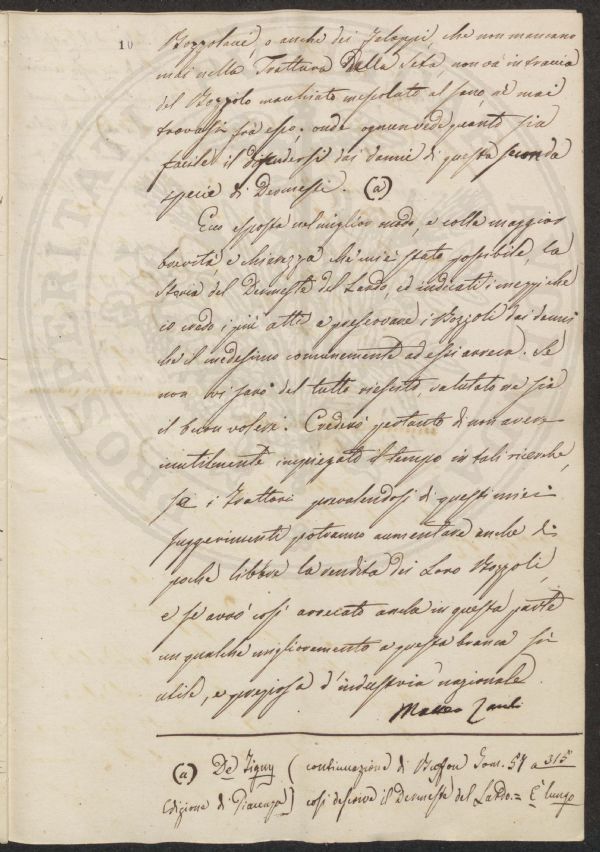 10
Bozzolacci, o anche dei Falloppi, che non mancano
mai nella Trattura della Seta, non và in traccia
del Bozzolo macchiato mescolato al sano, nè mai
trovasi frà esso; onde ognun vede quanto sia
facile il difendersi dai danni di questa seconda
specie di Dermesti. (a)
Ecco esposta nel miglior modo, e colla maggior
brevità, e chiarezza che mi è stato possibile, la
storia del Dermeste del Lardo, ed indicati i mezzi che
io credo i più atti a preservare i Bozzoli dai danni
che il medesimo comunemente ad essi arreca. Se
non vi sarò del tutto riescito, valutato ne sia
il buon volere. Crederò pertanto di non aver
inutilmente impiegato il tempo in tali ricerche,
se i Trattori prevalendosi di questi miei
suggerimenti potranno aumentare anche di
poche libbre la rendita dei Loro Bozzoli,
e se avrò così arrecato anche in questa parte
un qualche miglioramento a questa branca sì
utile, e preziosa d'industria nazionale.
Matteo
(a) De Tigny (continuazione di Buffon Tom. 58 a 315
Edizione di Piacenza) così descrive il Dermeste del Lardo = È lungo
PROSPERITATI